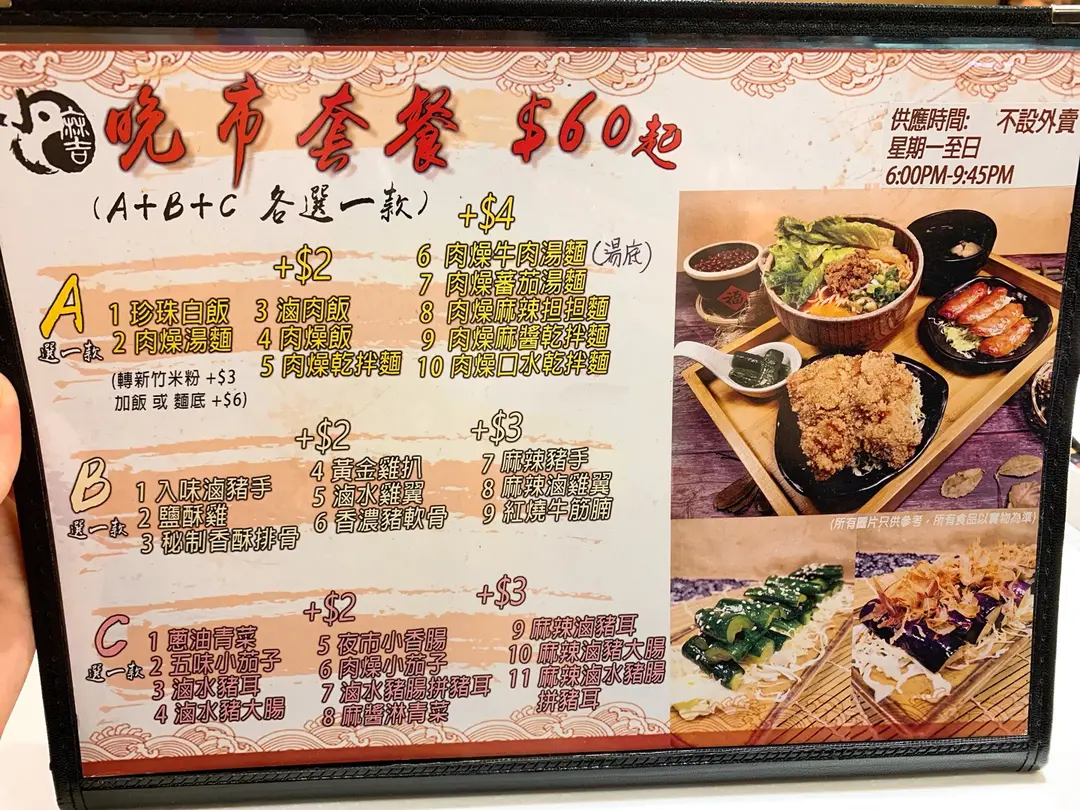 小
麻吉
晚市套餐 $60起
供應時間: 不設外賣
星期一至日
6:00PM-9:45PM
(A+B+C 各選一款)
A
選一款
1 珍珠白飯
2 肉燥湯麵
(轉新竹米粉 +$3
加飯 或 麵底 +$6)
+$2
3 滷肉飯
4 肉燥飯
5 肉燥乾拌麵
+$4
6 肉燥牛肉湯麵(湯底)
7 肉燥蕃茄湯麵
8 肉燥麻辣担担麵
9 肉燥麻醬乾拌麵
10 肉燥口水乾拌麵
B
選一款
1 入味滷豬手
2 鹽酥雞
3 秘制香酥排骨
+$2
4 黃金雞扒
5 滷水雞翼
6 香濃豬軟骨
+$3
7 麻辣豬手
8 麻辣滷雞翼
9 紅燒牛筋腩
C
選一款
1 蔥油青菜
2 五味小茄子
3 滷水豬耳
4 滷水豬大腸
+$2
5 夜市小香腸
6 肉燥小茄子
7 滷水豬腸拼豬耳
8 麻醬淋青菜
+$3
9 麻辣滷豬耳
10 麻辣滷豬大腸
11 麻辣滷水豬腸
拼豬耳
福
(所有圖片只供參考，所有食品以實物為準)